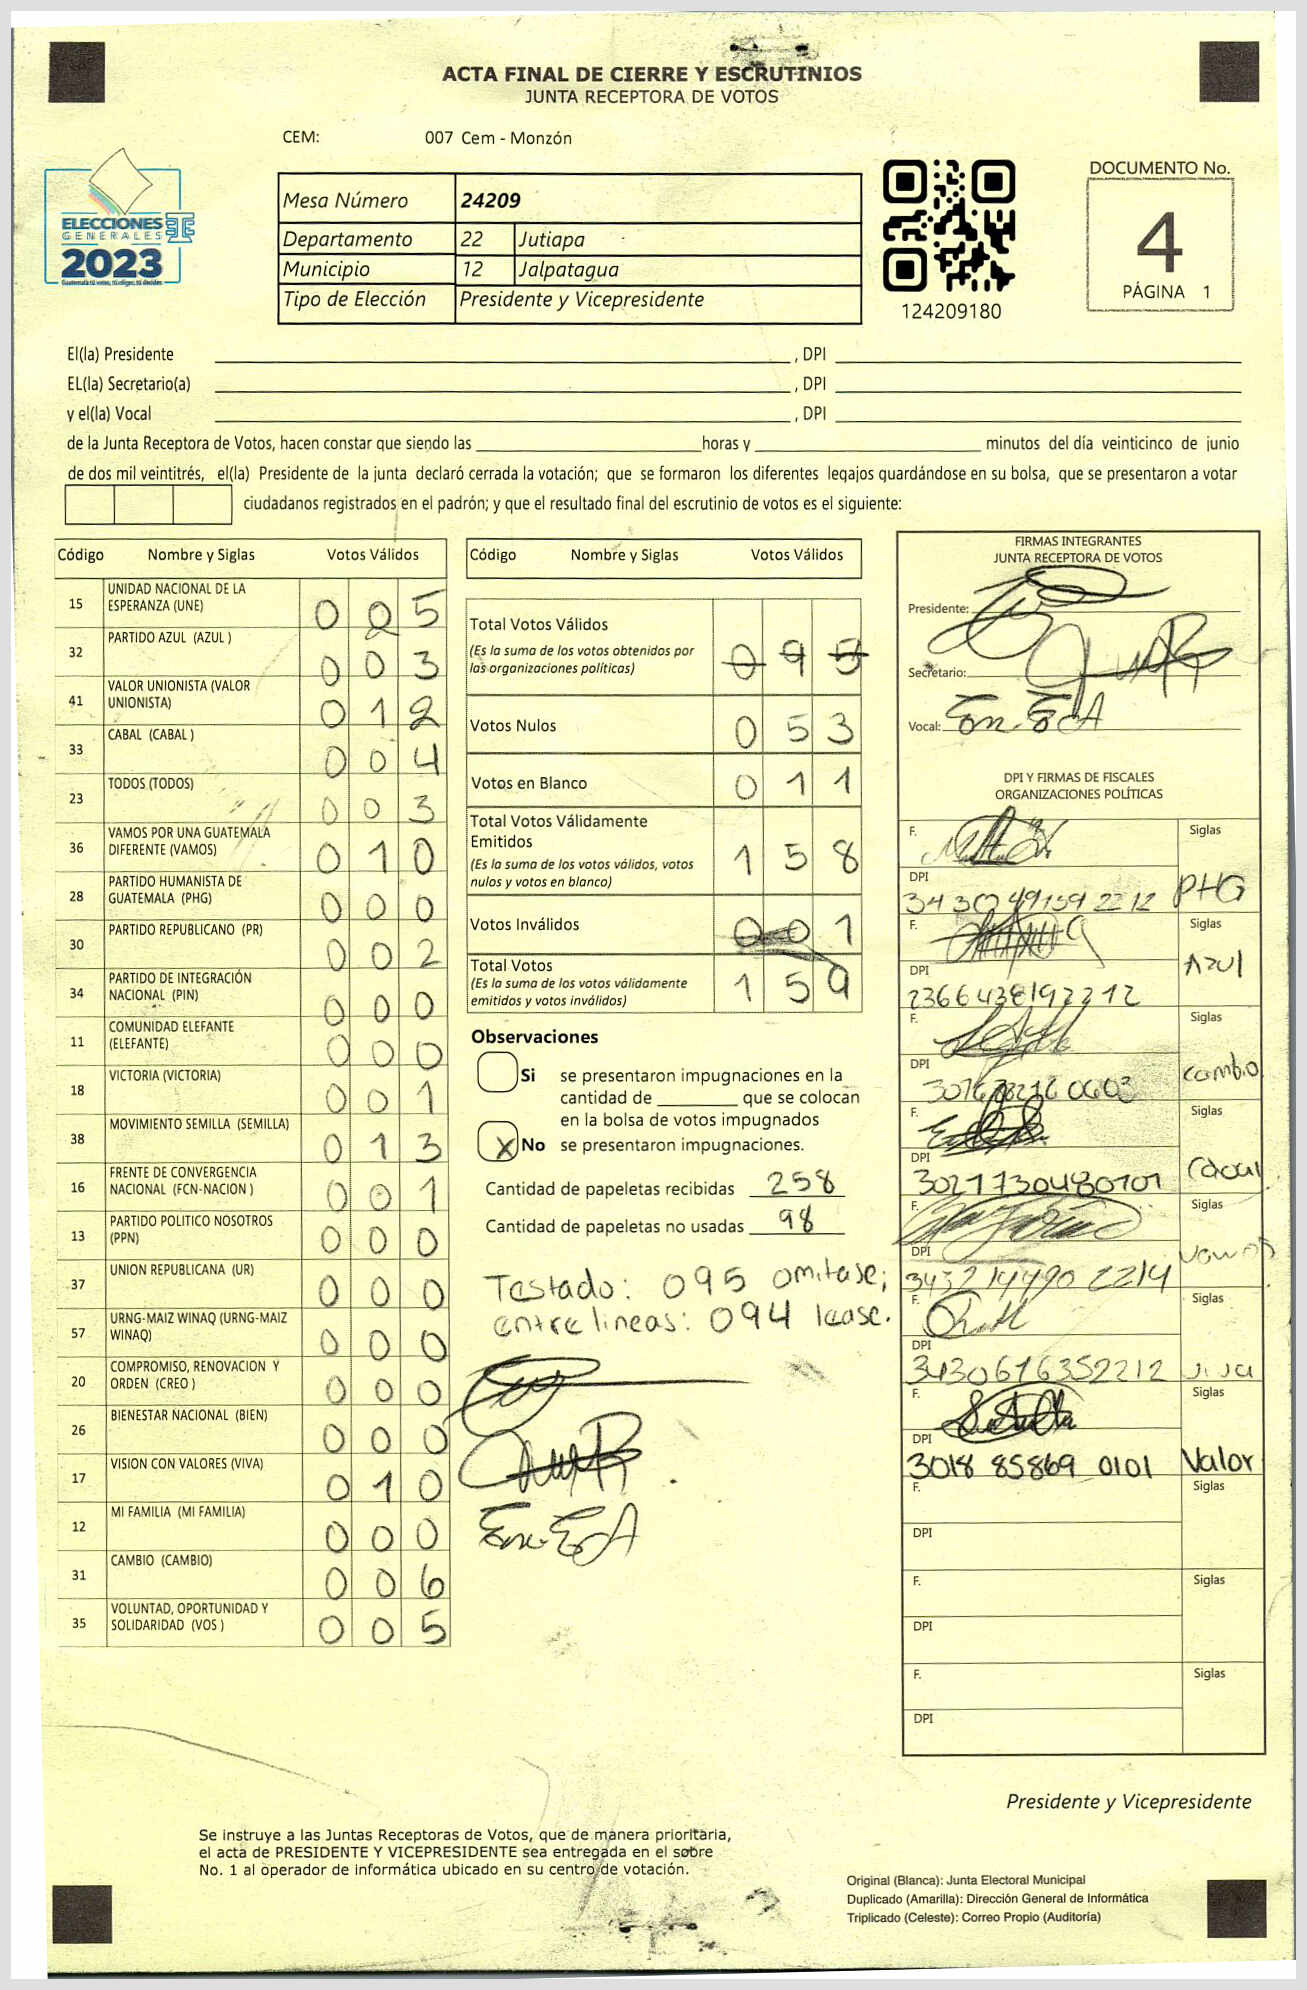 ACTA FINAL DE CIERRE Y ESCRUTINIOS
JUNTA RECEPTORA DE VOTOS
CEM: 007 Cem - Monzón
ELECCIONES
GENERALES
2023
Guatemala tú votas, tú eliges, tú decides
Mesa Número 24209
Departamento 22 Jutiapa
Municipio 12 Jalpatagua
Tipo de Elección Presidente y Vicepresidente
124209180
DOCUMENTO No.
4
PÁGINA 1
El(la) Presidente , DPI
EL(la) Secretario(a) , DPI
y el(la) Vocal , DPI
de la Junta Receptora de Votos, hacen constar que siendo las horas y minutos del día veinticinco de junio
de dos mil veintitrés, el(la) Presidente de la junta declaró cerrada la votación; que se formaron los diferentes legajos guardándose en su bolsa, que se presentaron a votar
ciudadanos registrados en el padrón; y que el resultado final del escrutinio de votos es el siguiente:
Código Nombre y Siglas Votos Válidos
15 UNIDAD NACIONAL DE LA ESPERANZA (UNE) 0 0 5
32 PARTIDO AZUL (AZUL ) 0 0 3
41 VALOR UNIONISTA (VALOR UNIONISTA) 0 1 2
33 CABAL (CABAL ) 0 0 4
23 TODOS (TODOS) 0 0 3
36 VAMOS POR UNA GUATEMALA DIFERENTE (VAMOS) 0 1 0
28 PARTIDO HUMANISTA DE GUATEMALA (PHG) 0 0 0
30 PARTIDO REPUBLICANO (PR) 0 0 2
34 PARTIDO DE INTEGRACIÓN NACIONAL (PIN) 0 0 0
11 COMUNIDAD ELEFANTE (ELEFANTE) 0 0 0
18 VICTORIA (VICTORIA) 0 0 1
38 MOVIMIENTO SEMILLA (SEMILLA) 0 1 3
16 FRENTE DE CONVERGENCIA NACIONAL (FCN-NACION ) 0 0 1
13 PARTIDO POLITICO NOSOTROS (PPN) 0 0 0
37 UNION REPUBLICANA (UR) 0 0 0
57 URNG-MAIZ WINAQ (URNG-MAIZ WINAQ) 0 0 0
20 COMPROMISO, RENOVACION Y ORDEN (CREO ) 0 0 0
26 BIENESTAR NACIONAL (BIEN) 0 0 0
17 VISION CON VALORES (VIVA) 0 1 0
12 MI FAMILIA (MI FAMILIA) 0 0 0
31 CAMBIO (CAMBIO) 0 0 6
35 VOLUNTAD, OPORTUNIDAD Y SOLIDARIDAD (VOS ) 0 0 5
Código Nombre y Siglas Votos Válidos
Total Votos Válidos
(Es la suma de los votos obtenidos por
las organizaciones políticas) 0 9 5
Votos Nulos 0 5 3
Votos en Blanco 0 1 1
Total Votos Válidamente
Emitidos 1 5 8
(Es la suma de los votos válidos, votos
nulos y votos en blanco)
Votos Inválidos 0 0 1
Total Votos
(Es la suma de los votos válidamente
emitidos y votos inválidos) 1 5 9
Observaciones
Si se presentaron impugnaciones en la
cantidad de que se colocan
en la bolsa de votos impugnados
X No se presentaron impugnaciones.
Cantidad de papeletas recibidas 258
Cantidad de papeletas no usadas 98
Testado: 095 omitase;
entre lineas: 094 lease.
FIRMAS INTEGRANTES
JUNTA RECEPTORA DE VOTOS
Presidente:
Secretario:
Vocal:
DPI Y FIRMAS DE FISCALES
ORGANIZACIONES POLÍTICAS
F. Siglas
DPI PHG
F. Siglas
DPI Azul
2366438192212
F. Siglas
DPI cambio
F. Siglas
DPI
3021730480101
F. Siglas
DPI Vamos
F. Siglas
DPI
3430616352212
F. Siglas
DPI
3018 85869 0101 Valor
F. Siglas
DPI
F. Siglas
DPI
F. Siglas
DPI
Presidente y Vicepresidente
Se instruye a las Juntas Receptoras de Votos, que de manera prioritaria,
el acta de PRESIDENTE Y VICEPRESIDENTE sea entregada en el sobre
No. 1 al operador de informática ubicado en su centro de votación.
Original (Blanca): Junta Electoral Municipal
Duplicado (Amarilla): Dirección General de Informática
Triplicado (Celeste): Correo Propio (Auditoría)